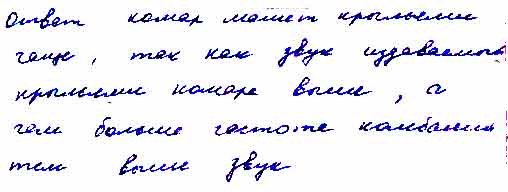 Ответ комар машет крыльями
чаще, так как звук издаваемый
крыльями комара выше, а
чем больше частота колебания
тем выше звук